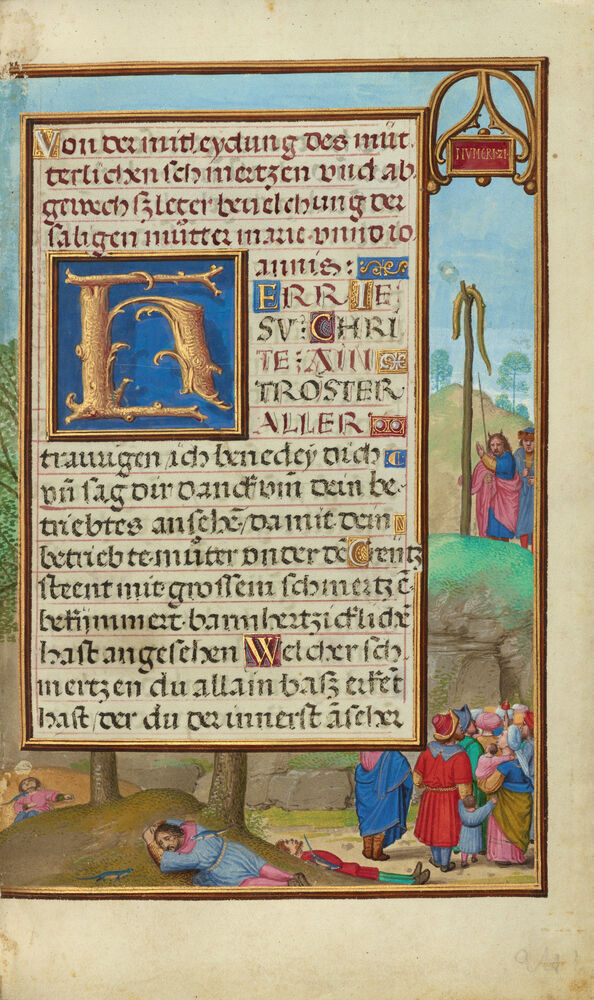 Von der mitleydung des müt
terlichen schmertzen vnd ab
gewechszleter beuelchung der
saligen mütter marie vnnd io
annis:
HERR IE
SV: CHRI
TE: AIN
TROSTER
ALLER
traurigen / ich benedey dich
vn̄ sag dir danck vm̄ dein be
triebtes ansehē / da mit dein
betriebte müter vnder dē Creütz
steent mit grossem schmertzē
bekümmert barmhertzicklichē
hast angesehen Welcher sch
mertzen du allain basz erkēt
hast / der du der innerst āseher
NVMERI·21·